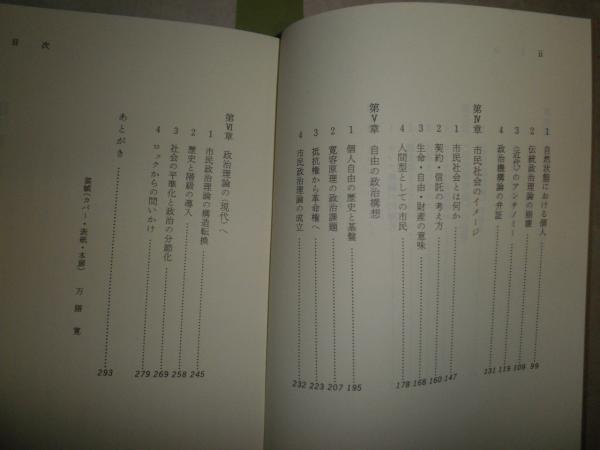 ii
1 自然状態における個人 99
2 伝統政治理論の崩壊 109
3 〈近代〉のアンチノミー 119
4 政治機構論の弁証 131
第Ⅳ章 市民社会のイメージ
1 市民社会とは何か 147
2 契約・信託の考え方 160
3 生命・自由・財産の意味 168
4 人間型としての市民 178
第Ⅴ章 自由の政治構想
1 個人自由の歴史と基盤 195
2 寛容原理の政治課題 207
3 抵抗権から革命権へ 223
4 市民政治理論の成立 232
目次
第Ⅵ章 政治理論の〈現代〉へ
1 市民政治理論の構造転換 245
2 歴史と階級の導入 258
3 社会の平準化と政治の分節化 269
4 ロックからの問いかけ 279
あとがき 293
装幀(カバー・表紙・本扉) 万膳寛